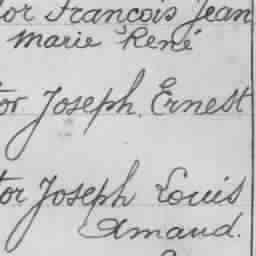 or François Jean
Marie René
or Joseph Ernest
tor Joseph Louis
Amand.